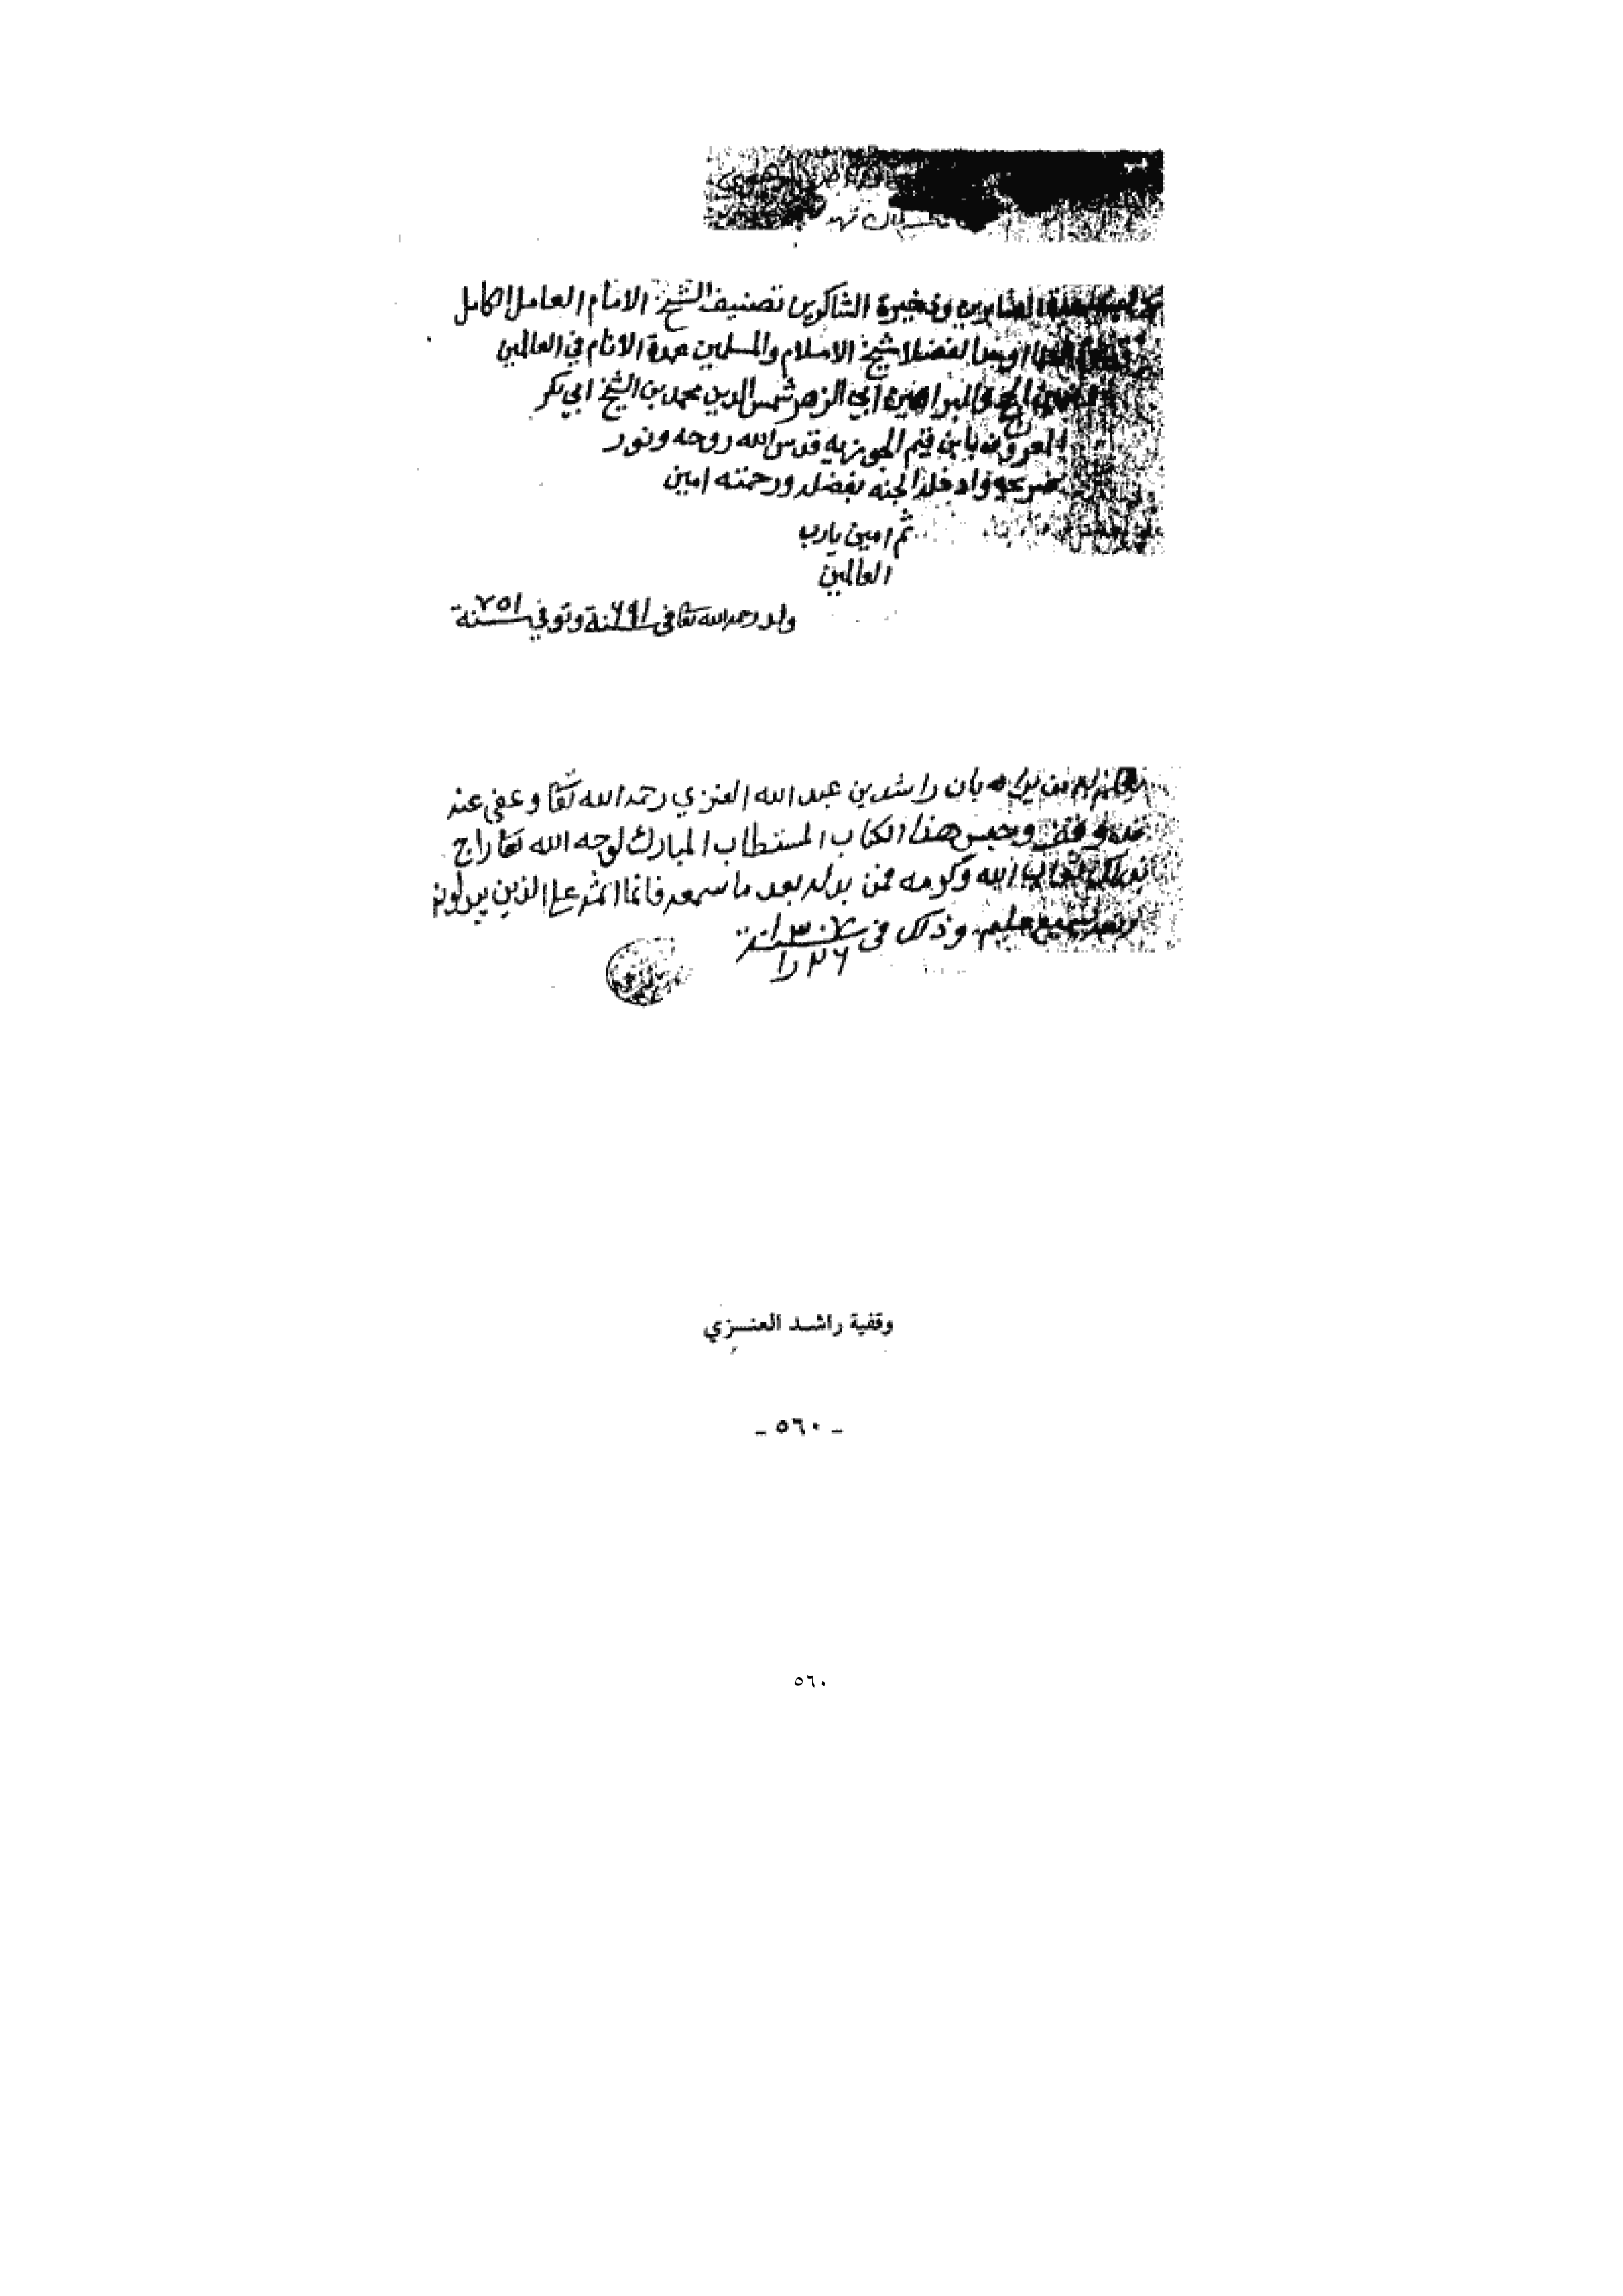 الصابرين وذخيرة الشاكرين تصنيف الشيخ الامام العامل الكامل
شيخ الاسلام والمسلمين عمدة الانام في العالمين
ابي الزهر شمس الدين محمد بن الشيخ ابي بكر
المعروف بابن قيم الجوزيه قدس الله روحه ونور
ضريحه وادخله الجنه بفضله ورحمته امين
ثم امين يارب
العالمين
ولد رحمه الله تعا في سنة ٦٩١ وتوفي سنة ٧٥١
بان راشد بن عبد الله العنزي رحمه الله تعا وعفى عنه
قد وقف وحبس هذا الكتاب المستطاب المبارك لوجه الله تعا راج
ثواب الله وكرمه فمن بدله بعد ما سمعه فانما اثمه على الذين يبدلونه
سميع عليم وذلك في سنة
وقفية راشد العنزي
- ٥٦٠ -
٥٦٠